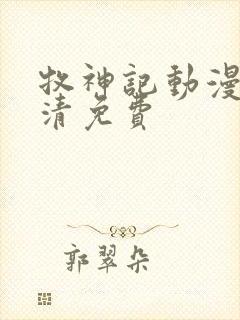 牧神記動漫
清免費
郭翠朵